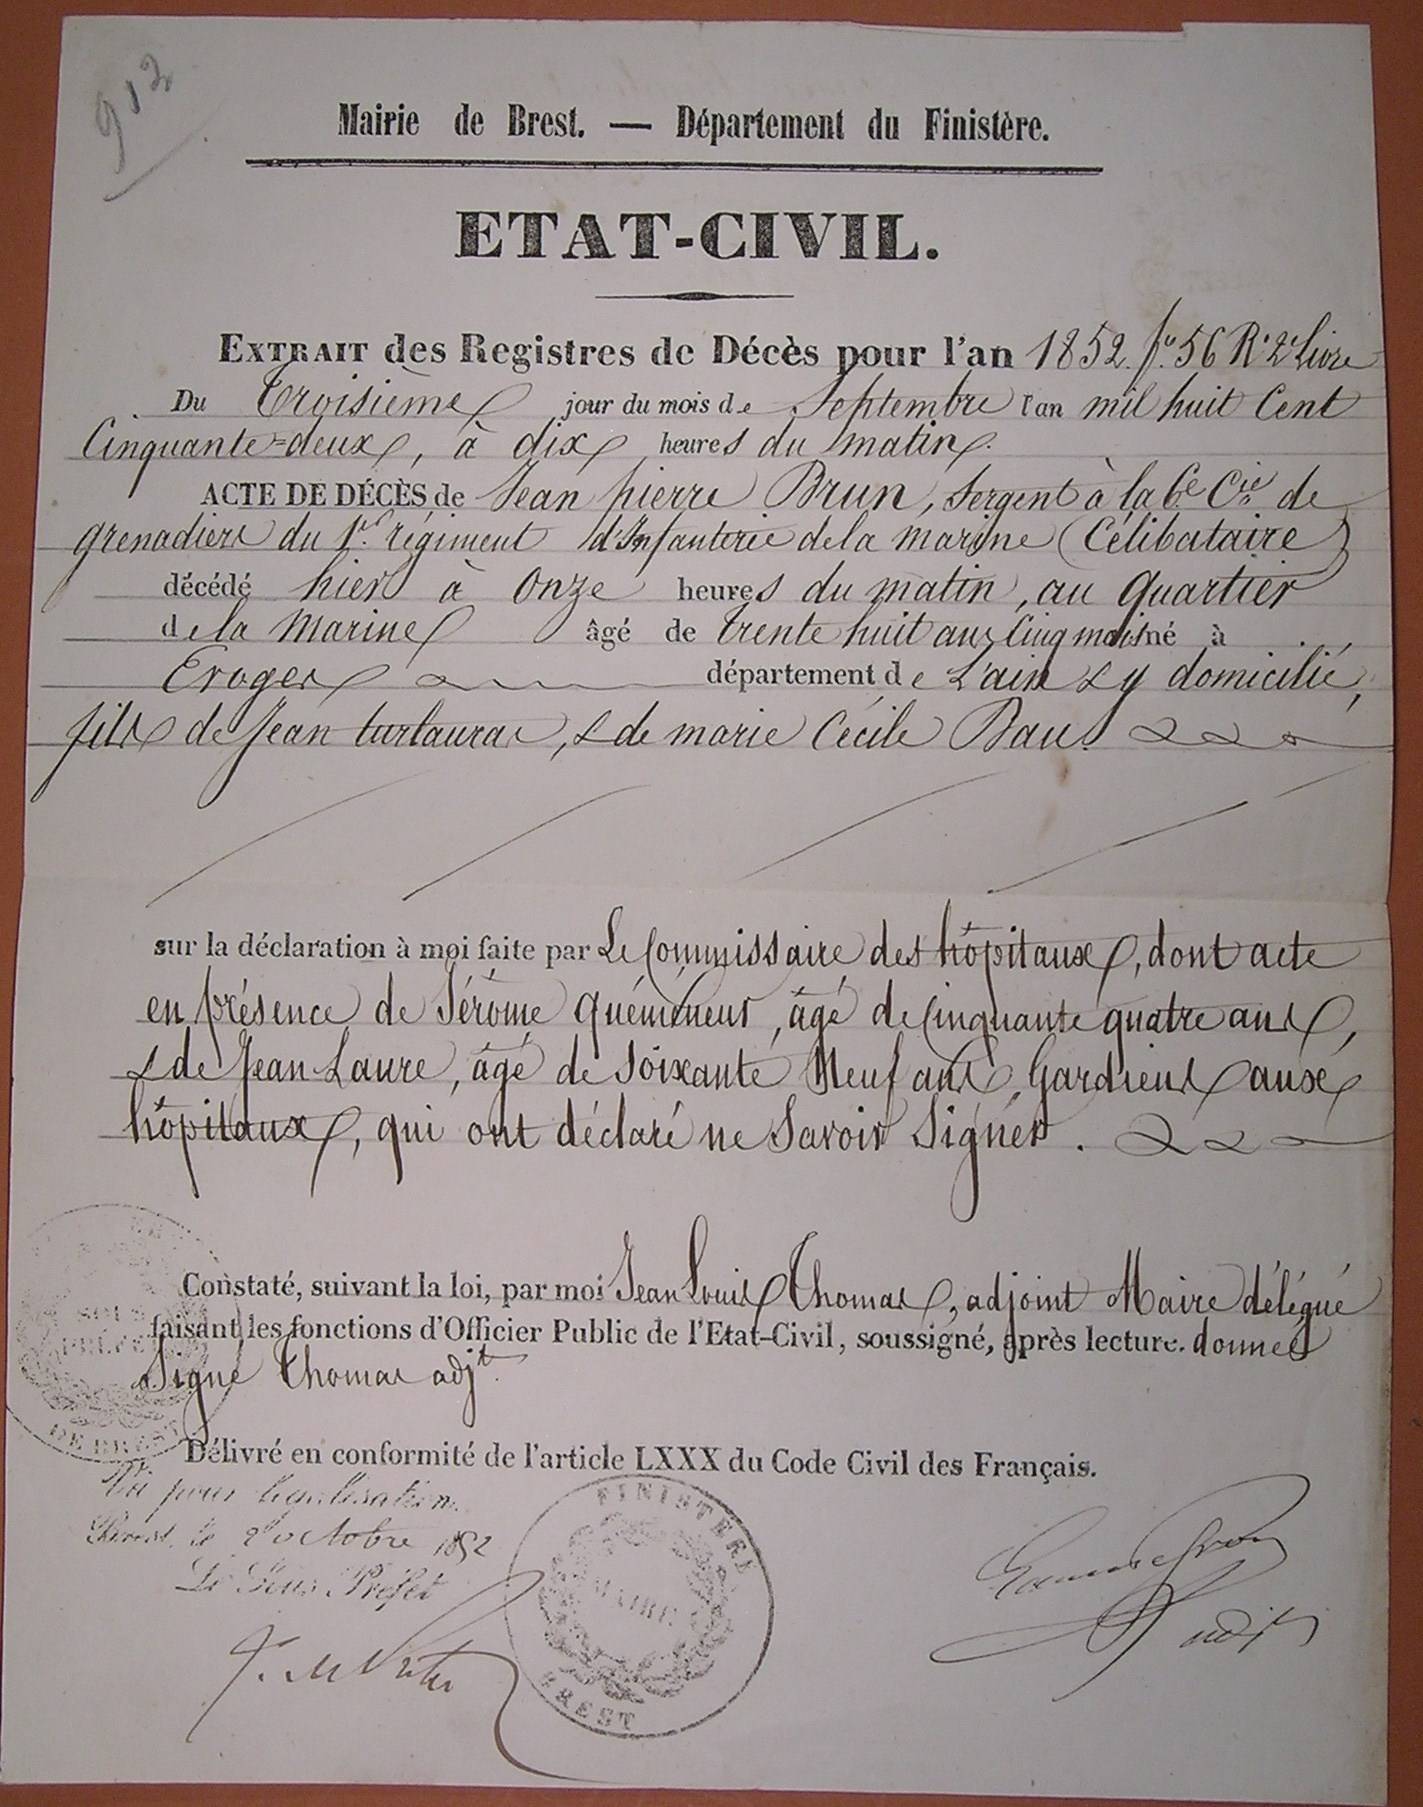 912
Mairie de Brest. — Département du Finistère.
ETAT-CIVIL.
EXTRAIT des Registres de Décès pour l'an 1852. fo. 56 Ro. 2e Livre
Du Troisième jour du mois de Septembre l'an mil huit Cent
Cinquante-deux, à dix heures du matin.
ACTE DE DÉCÈS de Jean pierre Brun, Sergent à la 6e Cie de
grenadiers du 1er régiment d'Infanterie de la marine (Célibataire)
décédé hier à Onze heures du matin, au quartier
de la Marine âgé de trente huit ans Cinq mois né à
Eroges département de L'ain & y domicilié,
fils de Jean turlauras, & de marie Cécile Bau.
sur la déclaration à moi faite par Le Commissaire des hôpitaux, dont acte
en présence de Jérôme quéméneur, âgé de Cinquante quatre ans,
& de Jean Laure, âgé de Soixante Neuf ans, Gardiens aux
hôpitaux, qui ont déclaré ne Savoir Signer.
Constaté, suivant la loi, par moi Jean Louis Thomas, adjoint Maire délégué
faisant les fonctions d'Officier Public de l'Etat-Civil, soussigné, après lecture. donnée
Signé Thomas adjt.
Délivré en conformité de l'article LXXX du Code Civil des Français.
Vu pour légalisation.
Brest, le 2 octobre 1852
Le Sous Préfet
FINISTÈRE
MAIRIE
BREST
SOUS
PRÉFEC
DE BREST
adjt